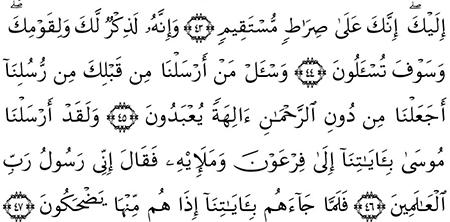 إِلَيْكَ ۖ إِنَّكَ عَلَىٰ صِرَٰطٍ مُّسْتَقِيمٍ ﴿٤٣﴾ وَإِنَّهُۥ لَذِكْرٌ لَّكَ وَلِقَوْمِكَ ۖ
وَسَوْفَ تُسْـَٔلُونَ ﴿٤٤﴾ وَسْـَٔلْ مَنْ أَرْسَلْنَا مِن قَبْلِكَ مِن رُّسُلِنَآ
أَجَعَلْنَا مِن دُونِ ٱلرَّحْمَٰنِ ءَالِهَةً يُعْبَدُونَ ﴿٤٥﴾ وَلَقَدْ أَرْسَلْنَا
مُوسَىٰ بِـَٔايَٰتِنَآ إِلَىٰ فِرْعَوْنَ وَمَلَإِي۟هِۦ فَقَالَ إِنِّى رَسُولُ رَبِّ
ٱلْعَٰلَمِينَ ﴿٤٦﴾ فَلَمَّا جَآءَهُم بِـَٔايَٰتِنَآ إِذَا هُم مِّنْهَا يَضْحَكُونَ ﴿٤٧﴾